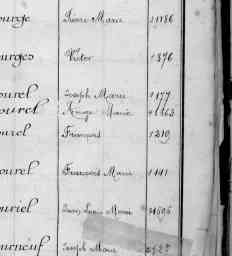 ourge Pierre Marie 1186
ourges Victor 1376
ourel Joseph Marie 1177
ourel Marie 1163
ourel François 1219
ourel François Marie 1141
ouriel Marie
ourneuf Joseph Marie